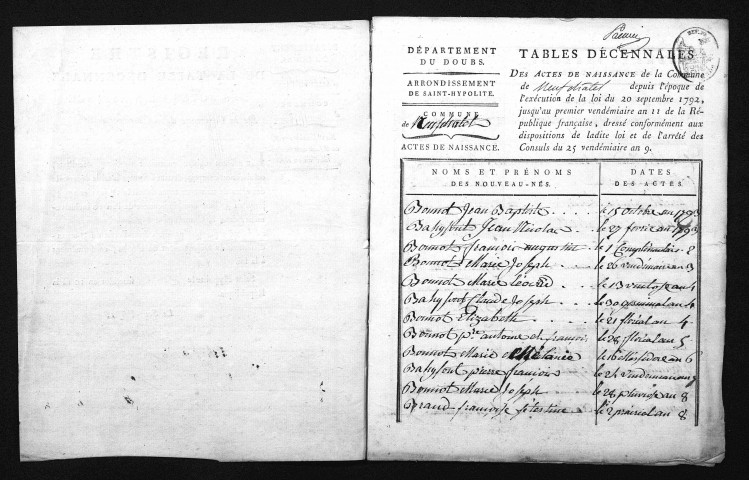 DÉPARTEMENT
DU DOUBS.
ARRONDISSEMENT
DE SAINT-HYPOLITE.
COMMUNE
de Neufchatel
ACTES DE NAISSANCE.
TABLES DÉCENNALES
DES ACTES DE NAISSANCE de la Commune
de Neufchatel depuis l'époque de
l'exécution de la loi du 20 septembre 1792,
jusqu'au premier vendémiaire an 11 de la Ré-
publique française, dressé conformément aux
dispositions de ladite loi et de l'arrêté des
Consuls du 25 vendémiaire an 9.
NOMS ET PRÉNOMS
DES NOUVEAU-NÉS.
DATES
DES ACTES.
Bonnot Jean Baptiste . . . . le 15 octobre an 1793
Jean Nicolas . . le 27
Bonnot françois augustin le 1 Complémentaire 2
Bonnot Marie Joseph . . . . le 26 vendémiaire an 3
Bonnot Marie . . . le 13 ventose an 4
Claude Joseph . . le 30 germinal an 4
Bonnot Elizabeth . . . le 21 floréal an 4
Bonnot antoine françois le 28 floréal an 5
Bonnot Marie Mélanie le 16 Messidore an 6
pierre françois . . le 24 vendemiaire an
Bonnot Marie Joseph . . . le 28 pluviose an 8
Grand françoise . . le 2 prairial an 8